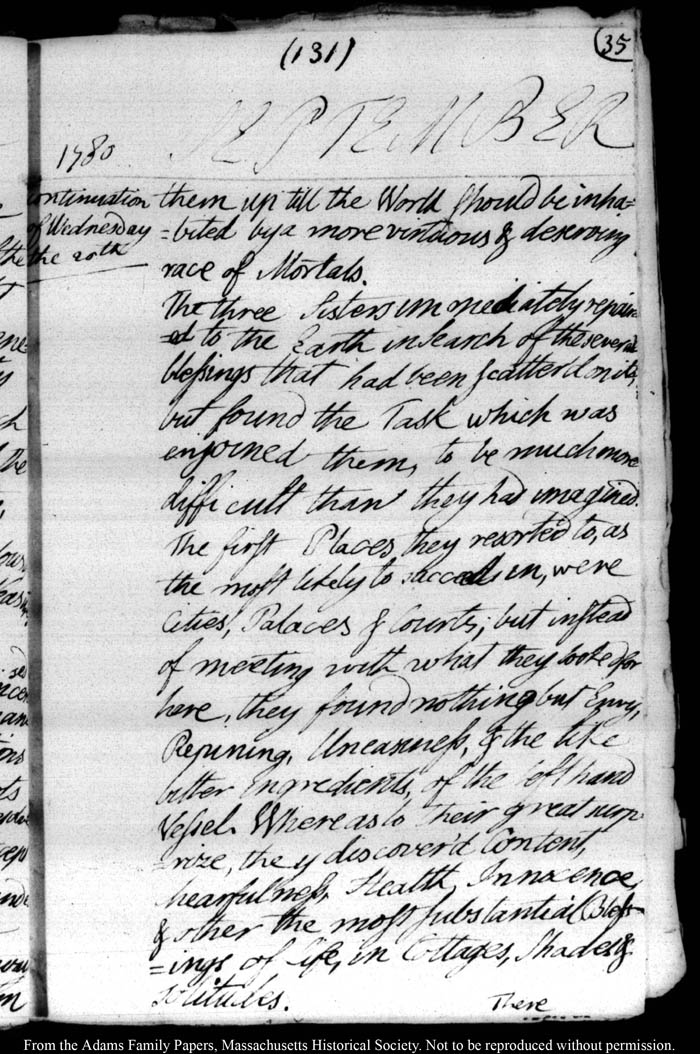 (131)
35
SEPTEMBER
1780
continuation
of Wednesday
the 20th
them up till the World should be inha=
=bited by a more virtuous & deserving
race of Mortals.
The three Sisters immediately repair=
=ed to the Earth in search of the several
blessings that had been scatter'd on it,
but found the Task which was
enjoined them, to be much more
difficult than they had imagined.
The first Places they resorted to, as
the most likely to succeed in, were
Cities, Palaces & Courts; but instead
of meeting with what they looked for
here, they found nothing but Envy,
Repining, Uneasiness, & the like
bitter Ingredients, of the left hand
Vessel. Whereas to their great surp-
-rize, they discover'd Content,
hearfulness, Health, Innocence,
& other the most substantial Bless-
=ings of life, in Cottages, Shades &
solitudes.
There
From the Adams Family Papers, Massachusetts Historical Society. Not to be reproduced without permission.